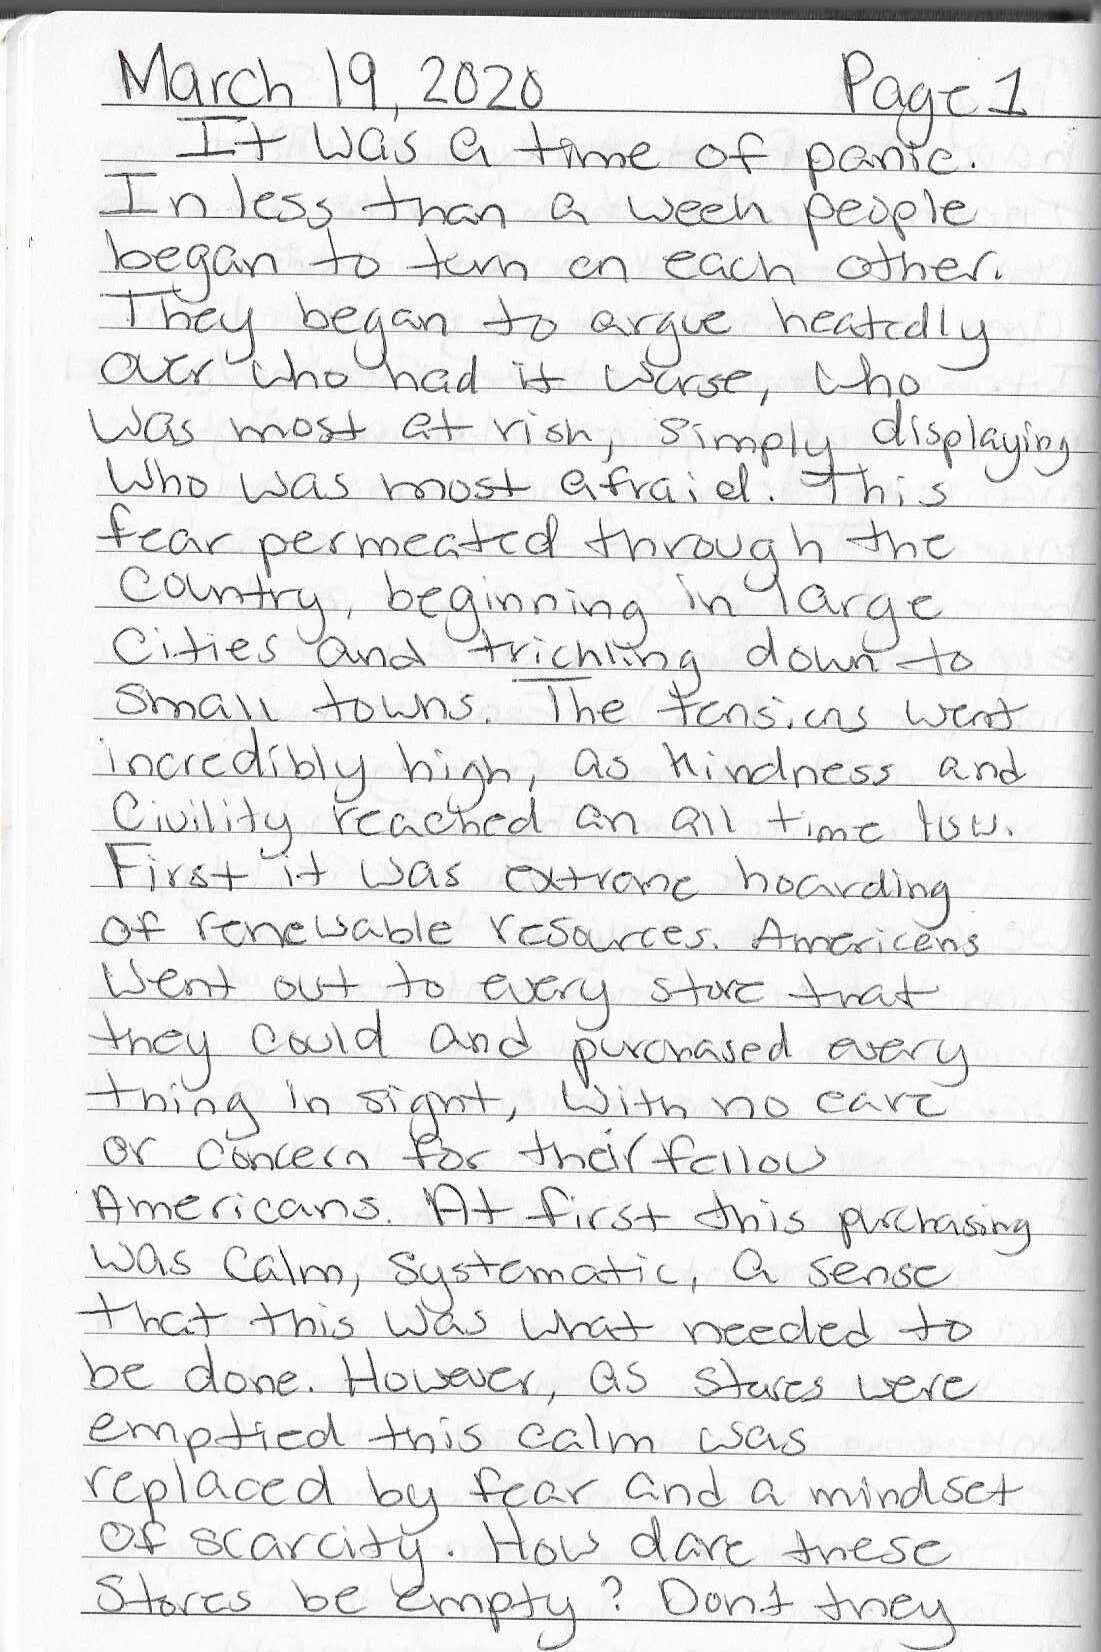 March 19, 2020 Page 1
It was a time of panic.
In less than a week people
began to turn on each other.
They began to argue heatedly
over who had it worse, who
was most at risk, simply displaying
who was most afraid. This
fear permeated through the
Country, beginning in large
Cities and trickling down to
small towns. The tensions went
incredibly high, as kindness and
Civility reached an all time low.
First it was extreme hoarding
of renewable resources. Americans
went out to every store that
they could and purchased every
thing in sight, with no care
or concern for their fellow
Americans. At first this purchasing
was calm, systematic, a sense
that this was what needed to
be done. However, as stores were
emptied this calm was
replaced by fear and a mindset
of scarcity. How dare these
Stores be empty? Don't they